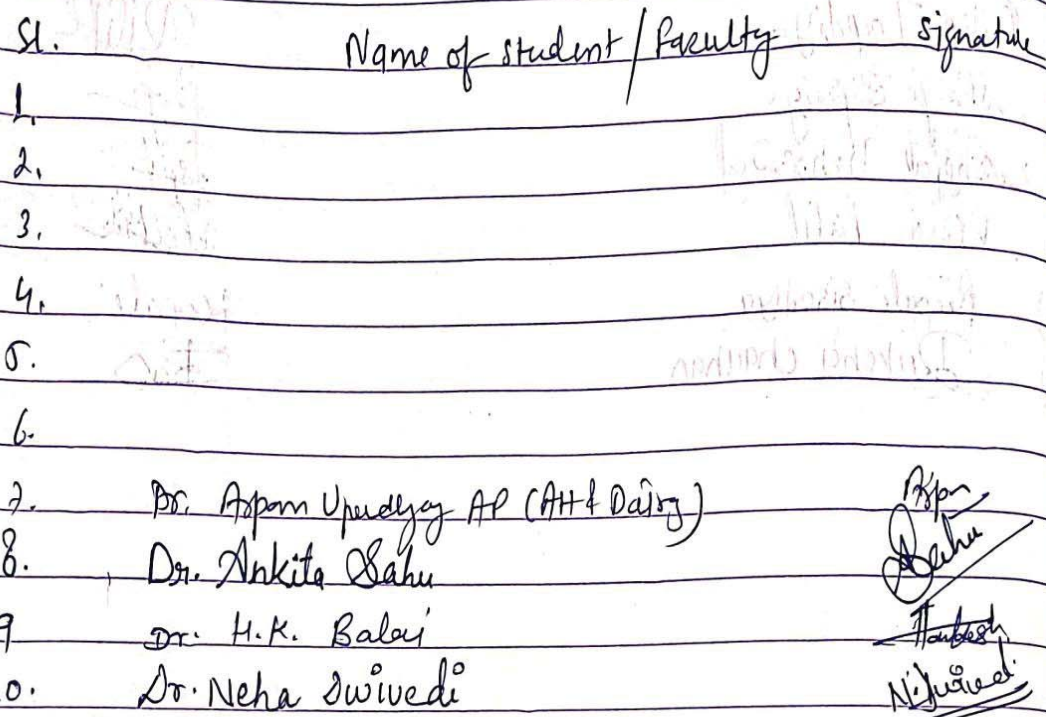 Sl. Name of student / Faculty Signature
1.
2.
3.
4.
5.
6.
7. Dr. Arpan Upadhyay AP (AH & Dairy) Arpan
8. Dr. Ankita Sahu Sahu
9 Dr. H.K. Balai
0. Dr. Neha Dwivedi N.Dwivedi